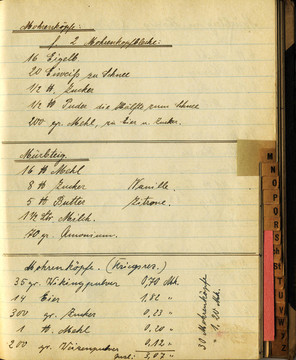 Mohrenköpfe.
f. 2 Mohrenkopfbleche.
16 Eigelb
20 Eiweiß zu Schnee
1/2 ℔. Zucker
1/2 ℔ Puder die Hälfte zum Schnee
200 gr. Mehl, zu Eier u. Zucker.
Mürbteig.
16 ℔ Mehl
8 ℔ Zucker Vanille.
5 ℔ Butter Zitrone.
1 1/2 Ltr. Milch.
70 gr. Amonium.
Mohrenköpfe. (Kriegsrez.)
35 gr. Vikingpulver 0,70 Mk.
14 Eier 1,82 "
300 gr. Zucker 0,23 "
1 ℔ Mehl 0,20 "
200 gr. 0,12 "
3,07 "
30 Mohrenköpfe
1,20 Mk.
M
N
O
P
Q
R
S
Sch
St
T
U
V
W
Z